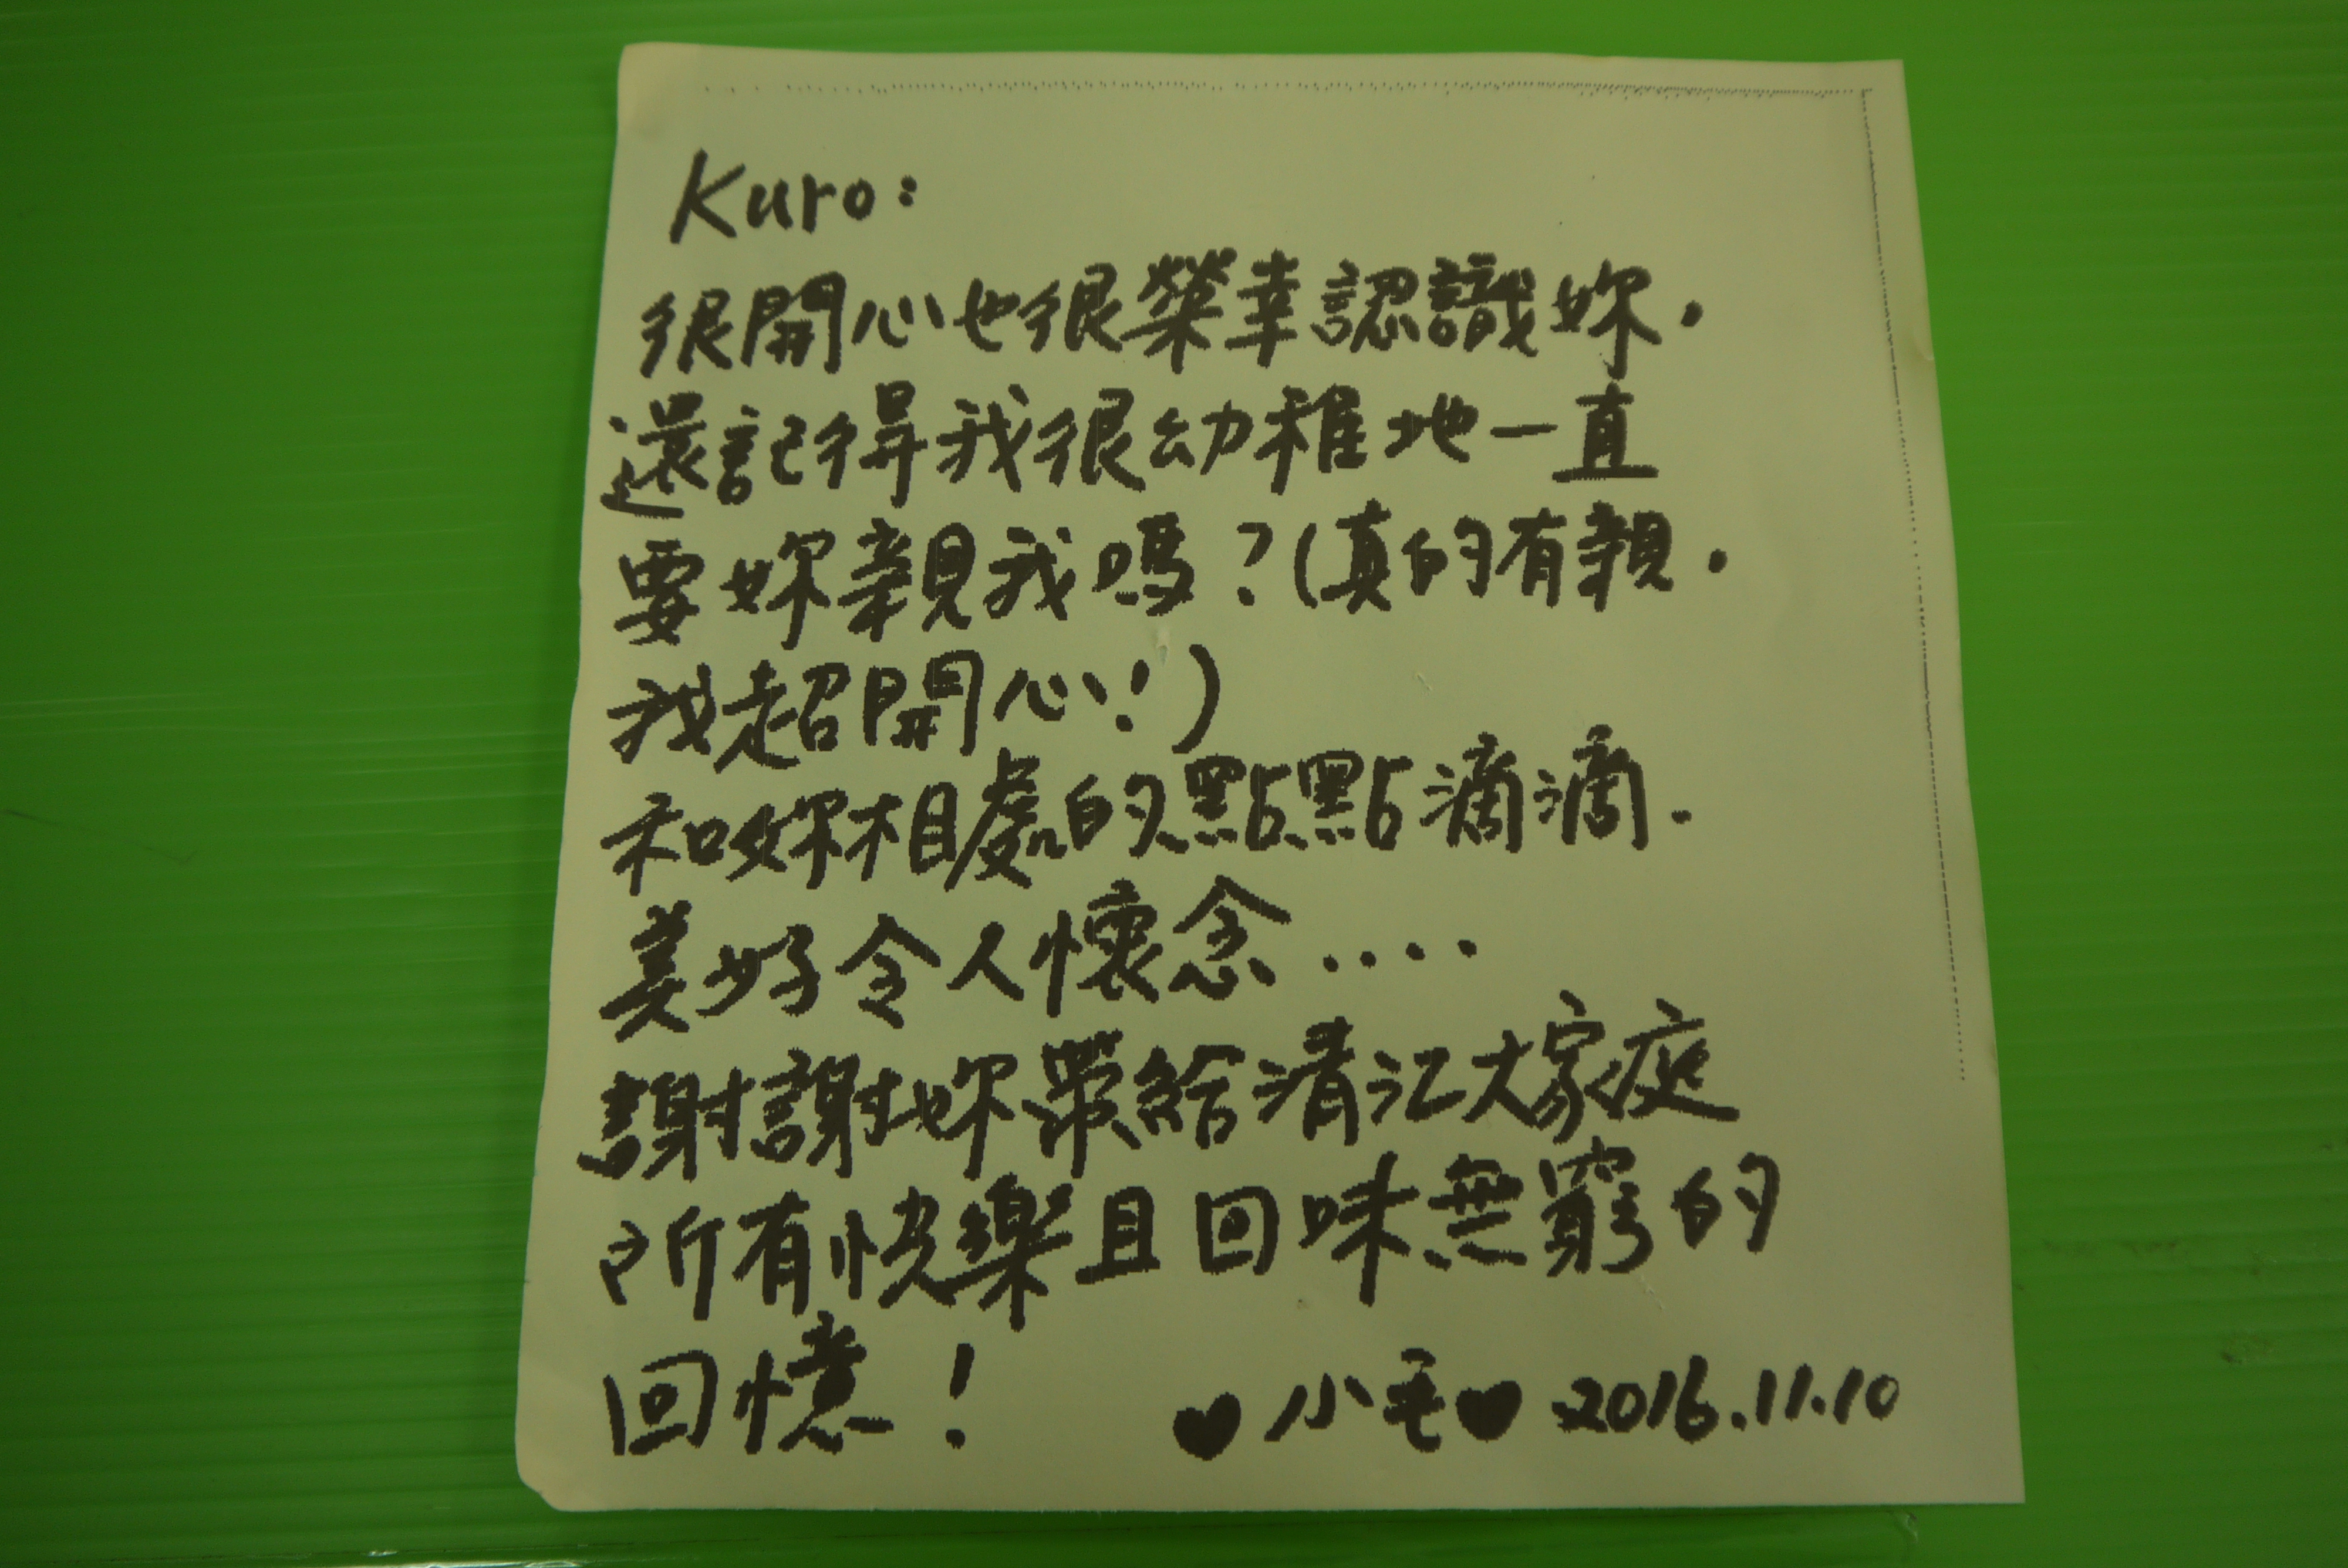 Kuro:
很開心也很榮幸認識妳.
還記得我很幼稚地一直
要妳親我嗎?(真的有親.
我超開心!)
和妳相處的點點滴滴.
美好令人懷念....
謝謝妳帶給清江大家庭
所有快樂且回味無窮的
回憶!
♥小毛♥ 2016.11.10